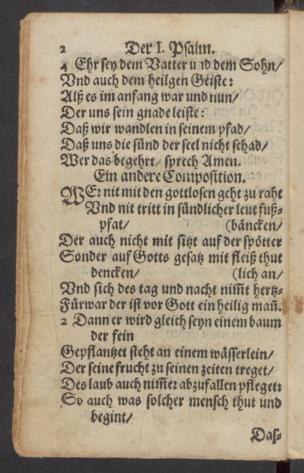 2 Der I. Psalm.
4 Ehr sey dem Vatter und dem Sohn/
Vnd auch dem heilgen Geiste:
Alß es im anfang war und nun/
Der uns sein gnade leiste:
Daß wir wandlen in seinem pfad/
Daß uns die sünd der seel nicht schad/
Wer das begehrt/ sprech Amen.
Ein andere Composition.
WEr nit mit den gottlosen geht zu raht
Vnd nit tritt in sündlicher leut fuß-
pfat/ (bäncken/
Der auch nicht mit sitzt auf der spötter
Sonder auf Gotts gesatz mit fleiß thut
dencken/ (lich an/
Vnd sich des tag und nacht nim̃t hertz-
Fürwar der ist vor Gott ein heilig mañ.
2 Dann er wird gleich seyn einem baum
der fein
Gepflantzet steht an einem wässerlein/
Der seine frucht zu seinen zeiten treget/
Des laub auch nim̃er abzufallen pfleget:
So auch was solcher mensch thut und
begint/
Das-